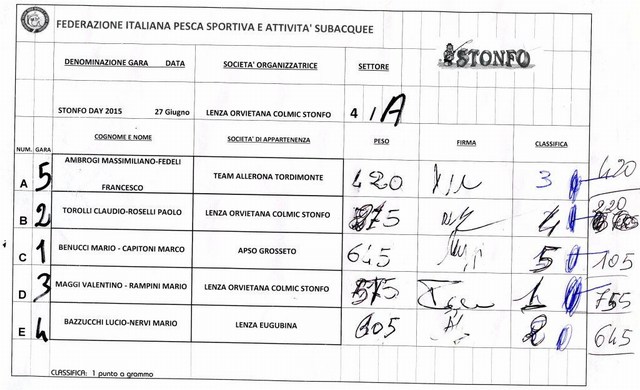 FEDERAZIONE ITALIANA PESCA SPORTIVA E ATTIVITA' SUBACQUEE
DENOMINAZIONE GARA DATA SOCIETA' ORGANIZZATRICE SETTORE
STONFO
STONFO DAY 2015 27 Giugno LENZA ORVIETANA COLMIC STONFO 4 / A
NUM. GARA COGNOME E NOME SOCIETA' DI APPARTENENZA PESO FIRMA CLASSIFICA
A 5 AMBROGI MASSIMILIANO-FEDELI FRANCESCO TEAM ALLERONA TORDIMONTE 420 3 420
B 2 TOROLLI CLAUDIO-ROSELLI PAOLO LENZA ORVIETANA COLMIC STONFO 4 220
C 1 BENUCCI MARIO - CAPITONI MARCO APSO GROSSETO 645 5 105
D 3 MAGGI VALENTINO - RAMPINI MARIO LENZA ORVIETANA COLMIC STONFO 1 755
E 4 BAZZUCCHI LUCIO-NERVI MARIO LENZA EUGUBINA 2 645
CLASSIFICA: 1 punto a grammo